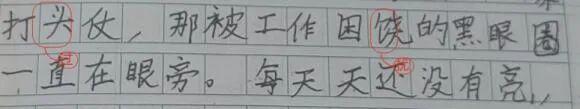 打头仗，那被工作困饶的黑眼圈
一直在眼旁。每天天还没有亮，